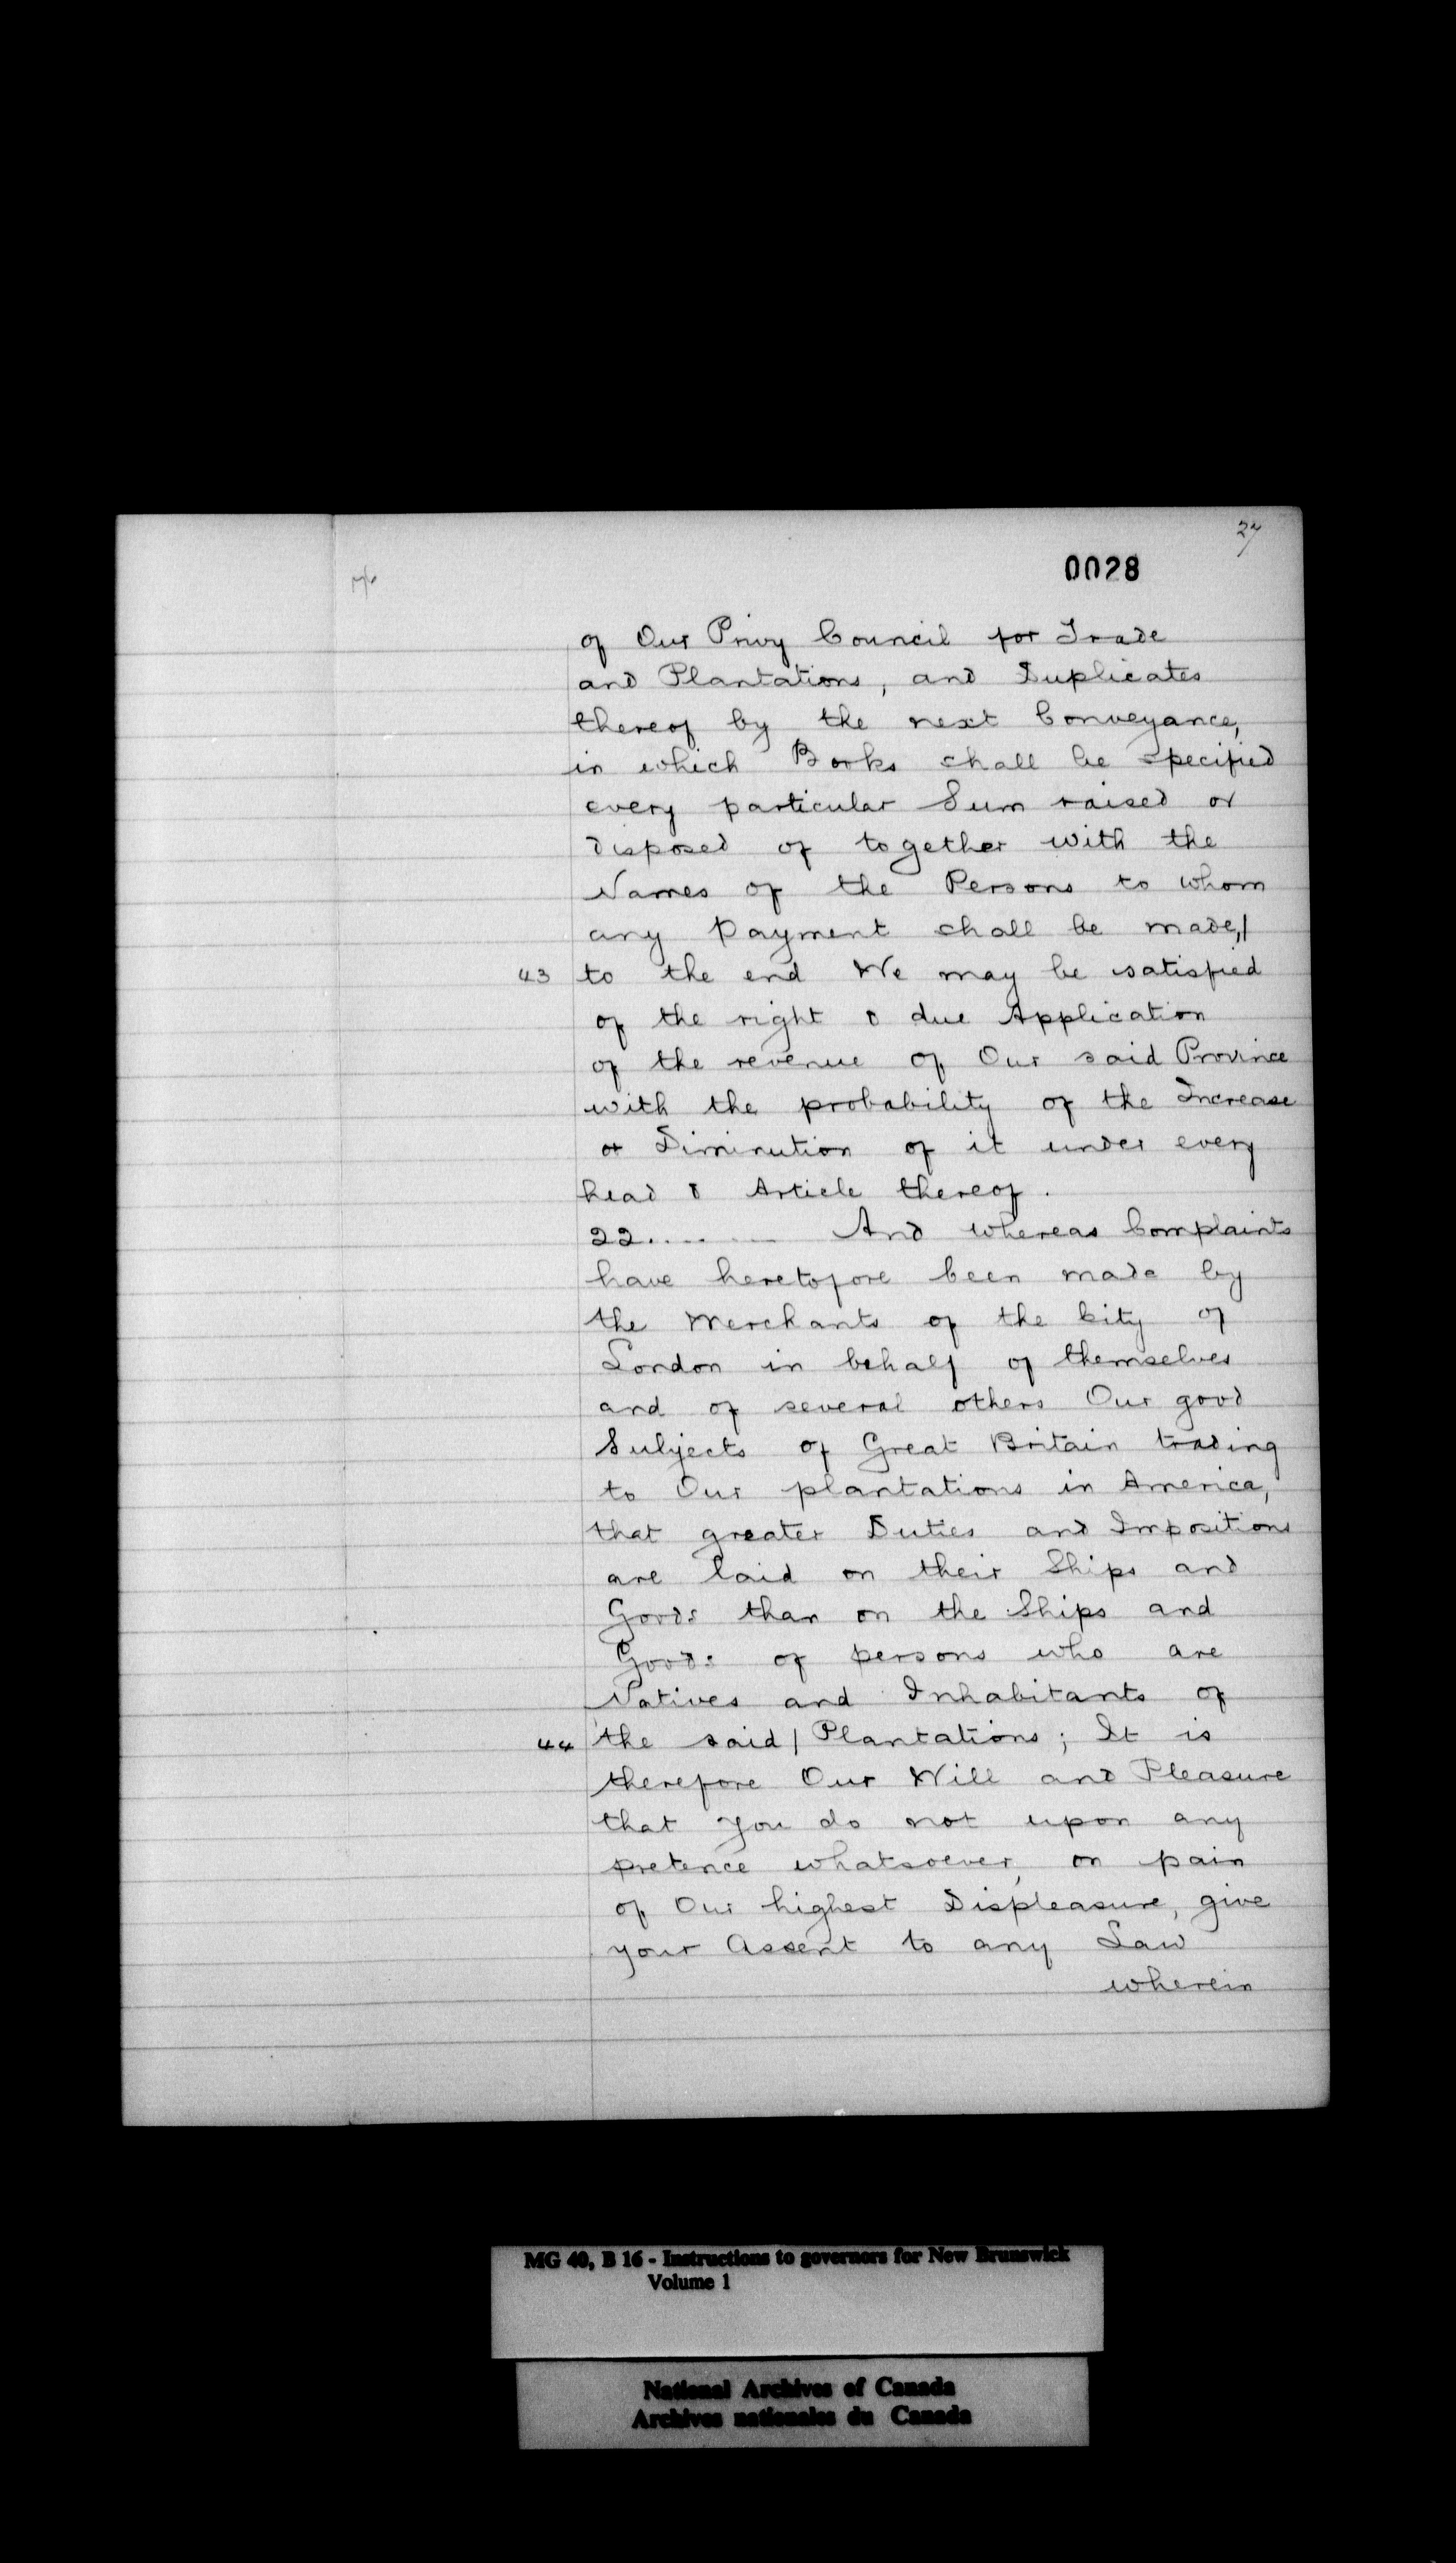 27
0028
of Our Privy Council for Trade
and Plantations, and Duplicates
thereof by the next Conveyance,
in which Books shall be specified
every particular Sum raised or
disposed of together with the
Names of the Persons to whom
any Payment shall be made,/
43 to the end We may be satisfied
of the right & due Application
of the revenue of Our said Province
with the probability of the Increase
or Diminution of it under every
head & Article thereof.
22........ And whereas Complaints
have heretofore been made by
the Merchants of the City of
London in behalf of themselves
and of several others Our good
Subjects of Great Britain trading
to Our plantations in America,
that greater Duties and Impositions
are laid on their Ships and
Goods than on the Ships and
Goods of persons who are
Natives and Inhabitants of
44 the said / Plantations; It is
therefore Our Will and Pleasure
that you do not upon any
pretence whatsoever, on pain
of Our highest Displeasure, give
your Assent to any Law
wherein
MG 40, B 16 - Instructions to governors for New Brunswick
Volume 1
National Archives of Canada
Archives nationales du Canada